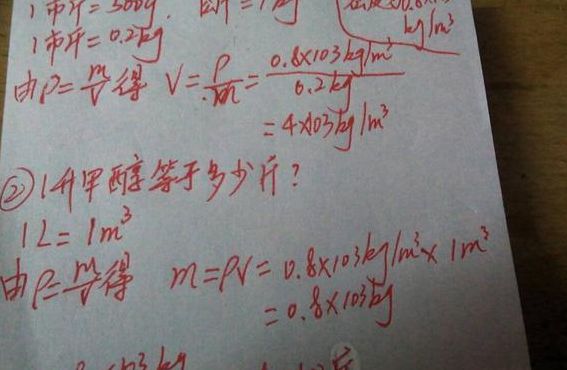 1市斤=500g. 1公斤=1kg
1市斤=0.2kg
kg/m³
由ρ=m/V得 V=ρ/m=0.8×103kg/m³/0.2kg
=4×103kg/m³
②1升甲醇等于多少斤?
1L=1m³
由ρ=m/V得 m=ρV=0.8×103kg/m³×1m³
=0.8×103kg